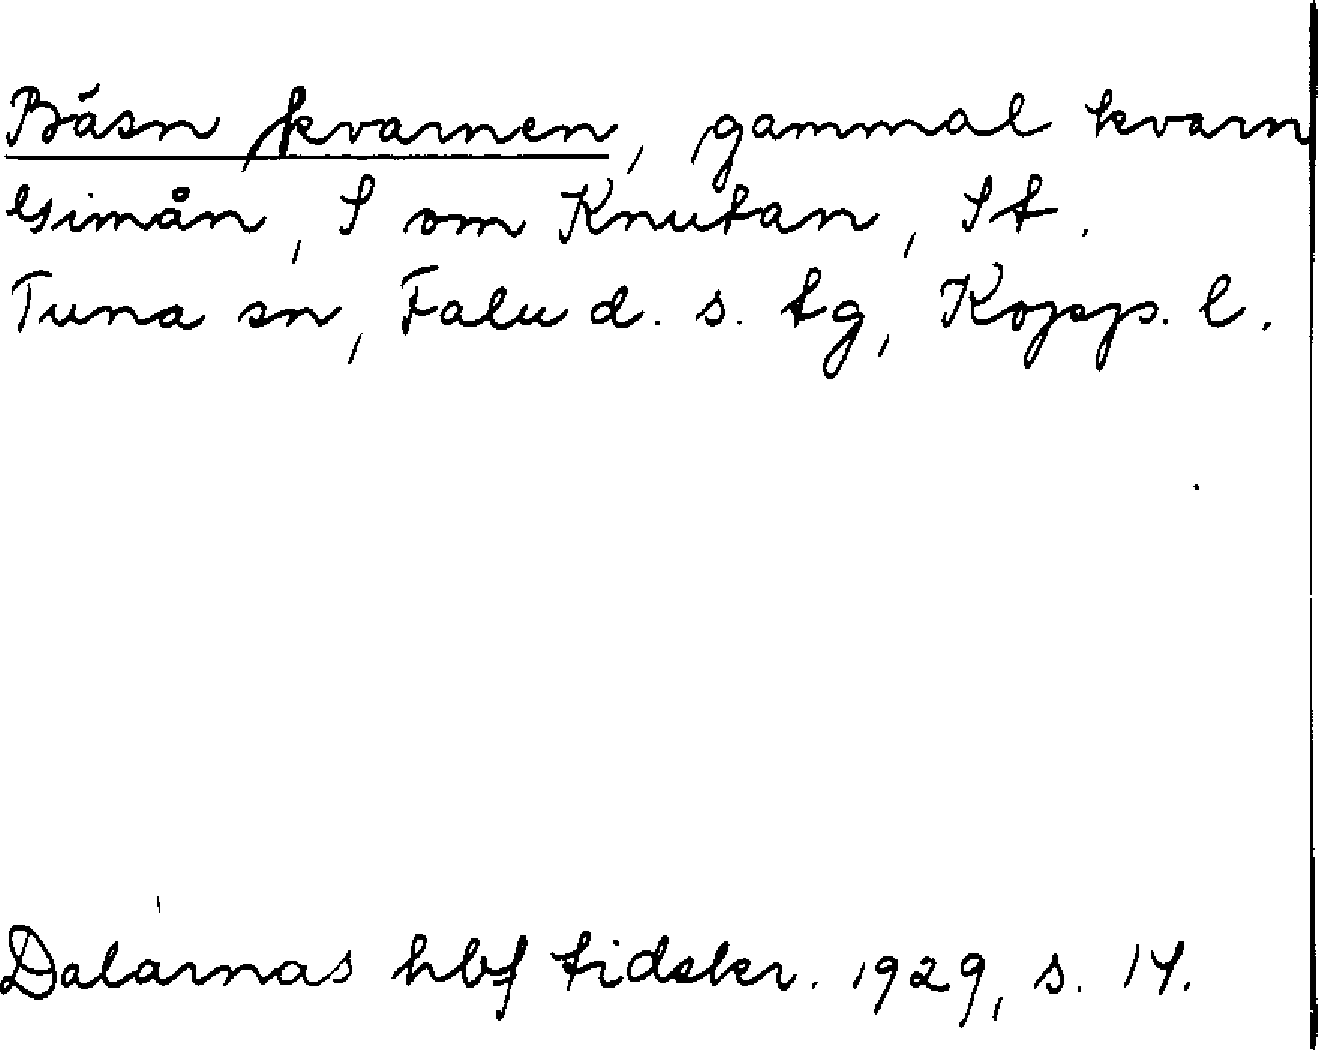 Bäsnkvarnen, gammal kvarn
Gimån, S om Knutan, St.
Tuna sn, Falu d. s. tg, Kopp. l.
Dalarnas hbf tidskr. 1929, s. 14.